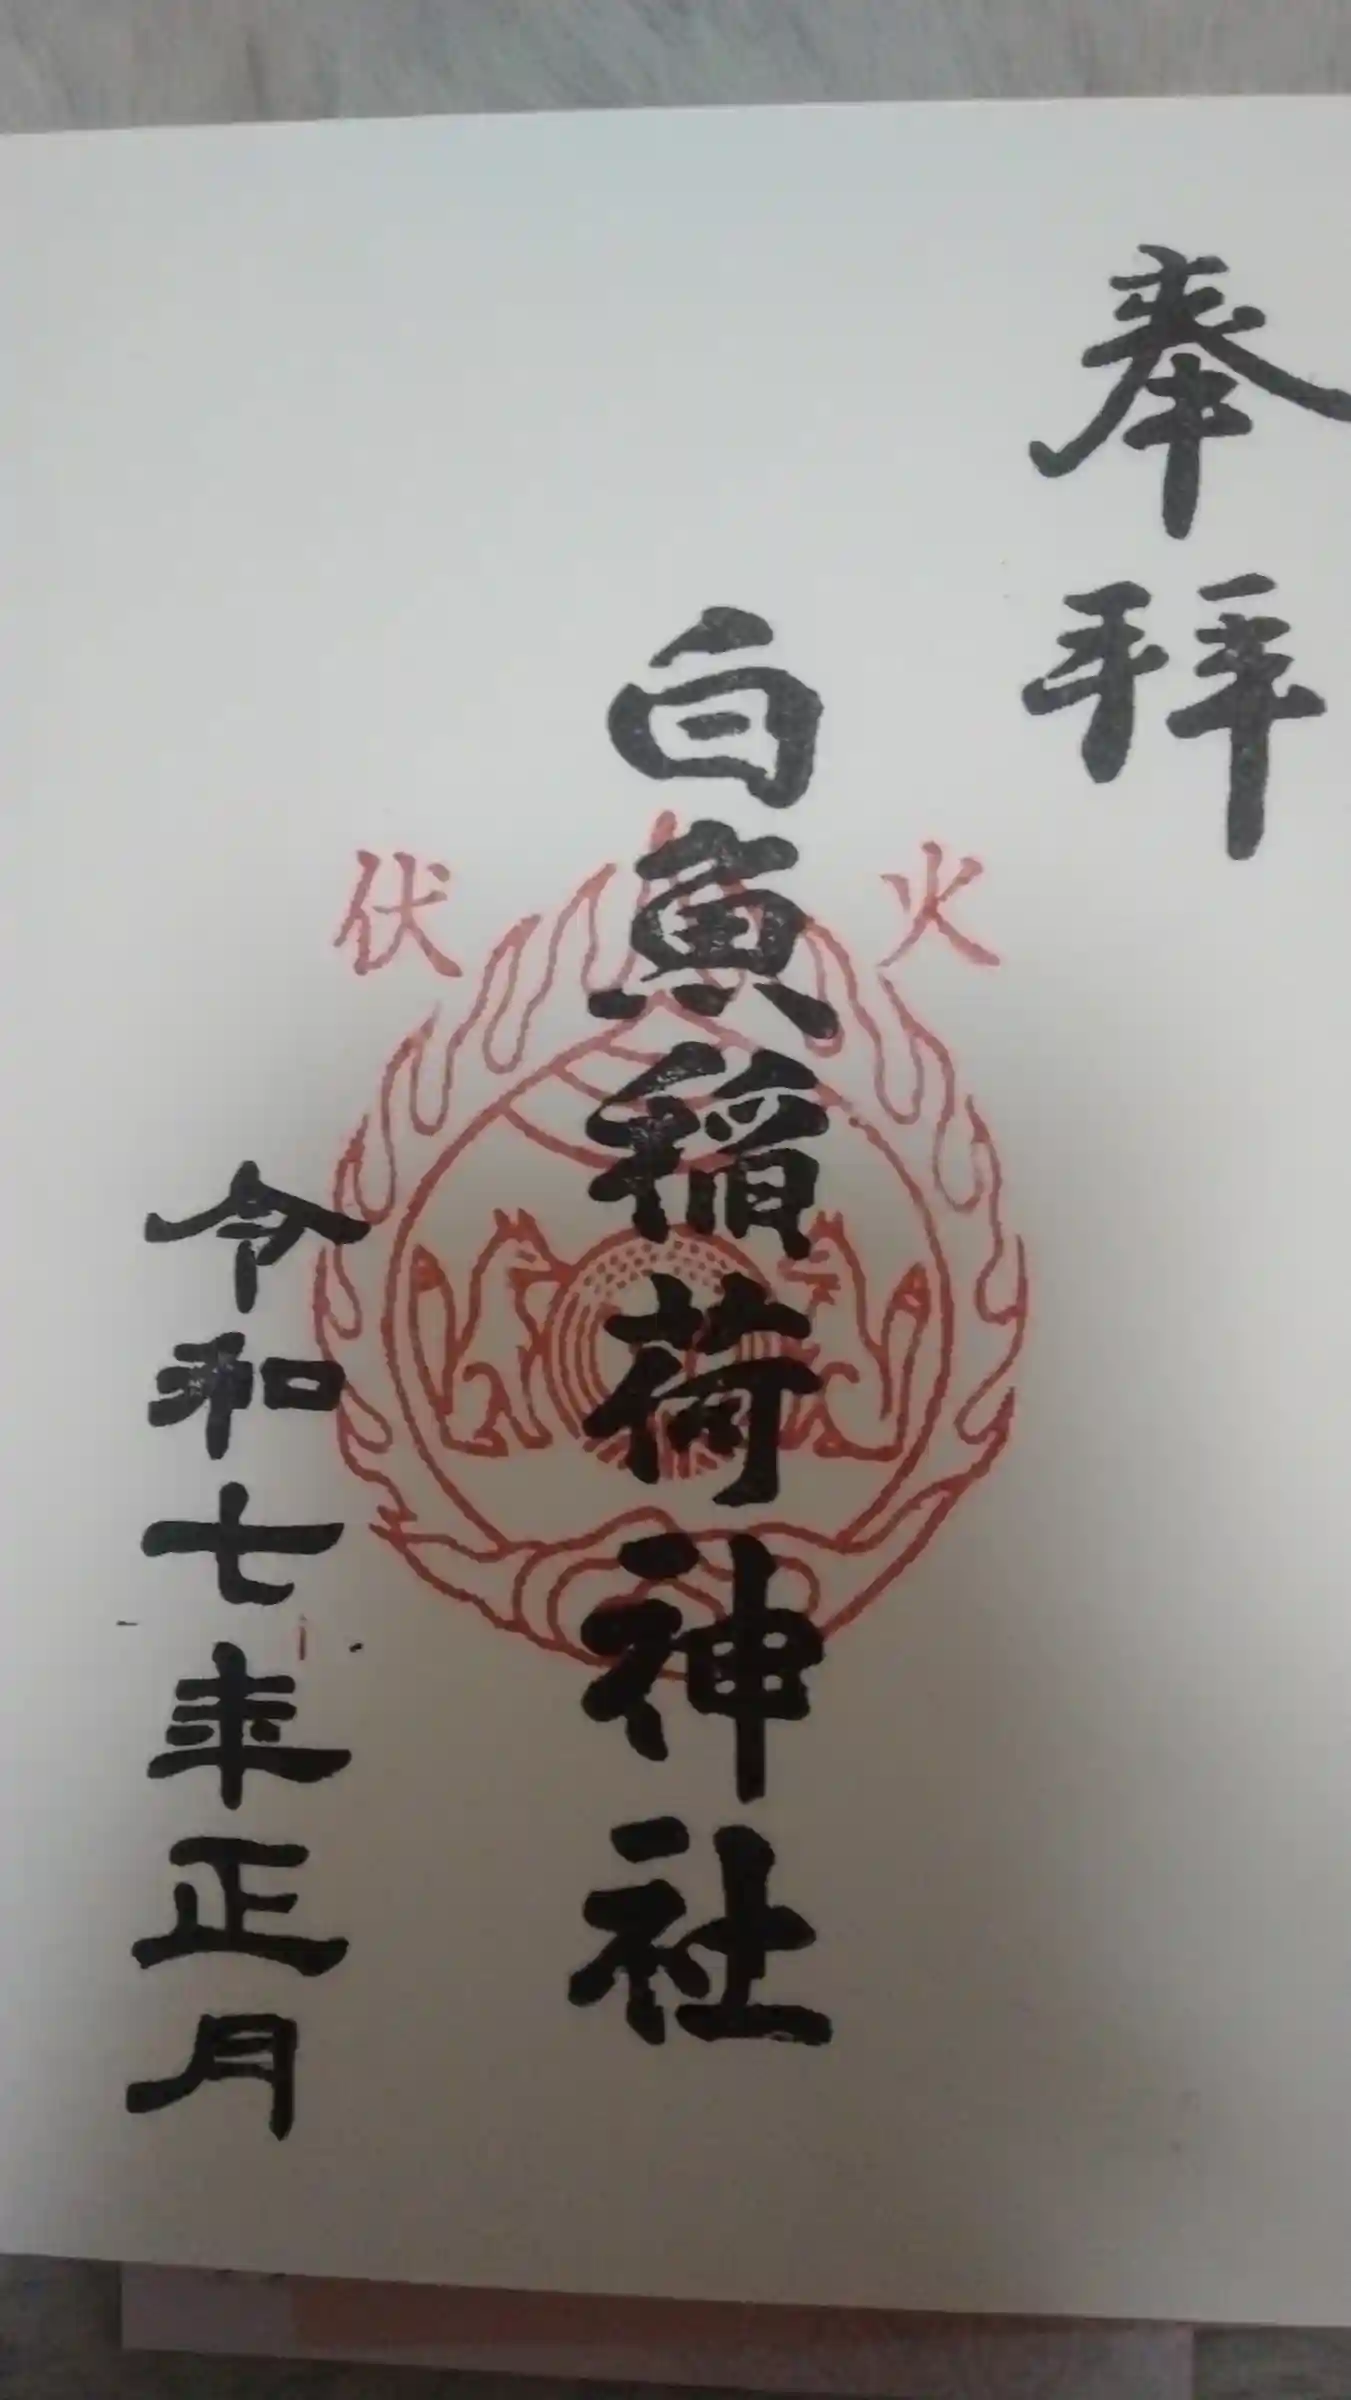 奉拝
白寅稲荷神社
火伏
令和七年正月